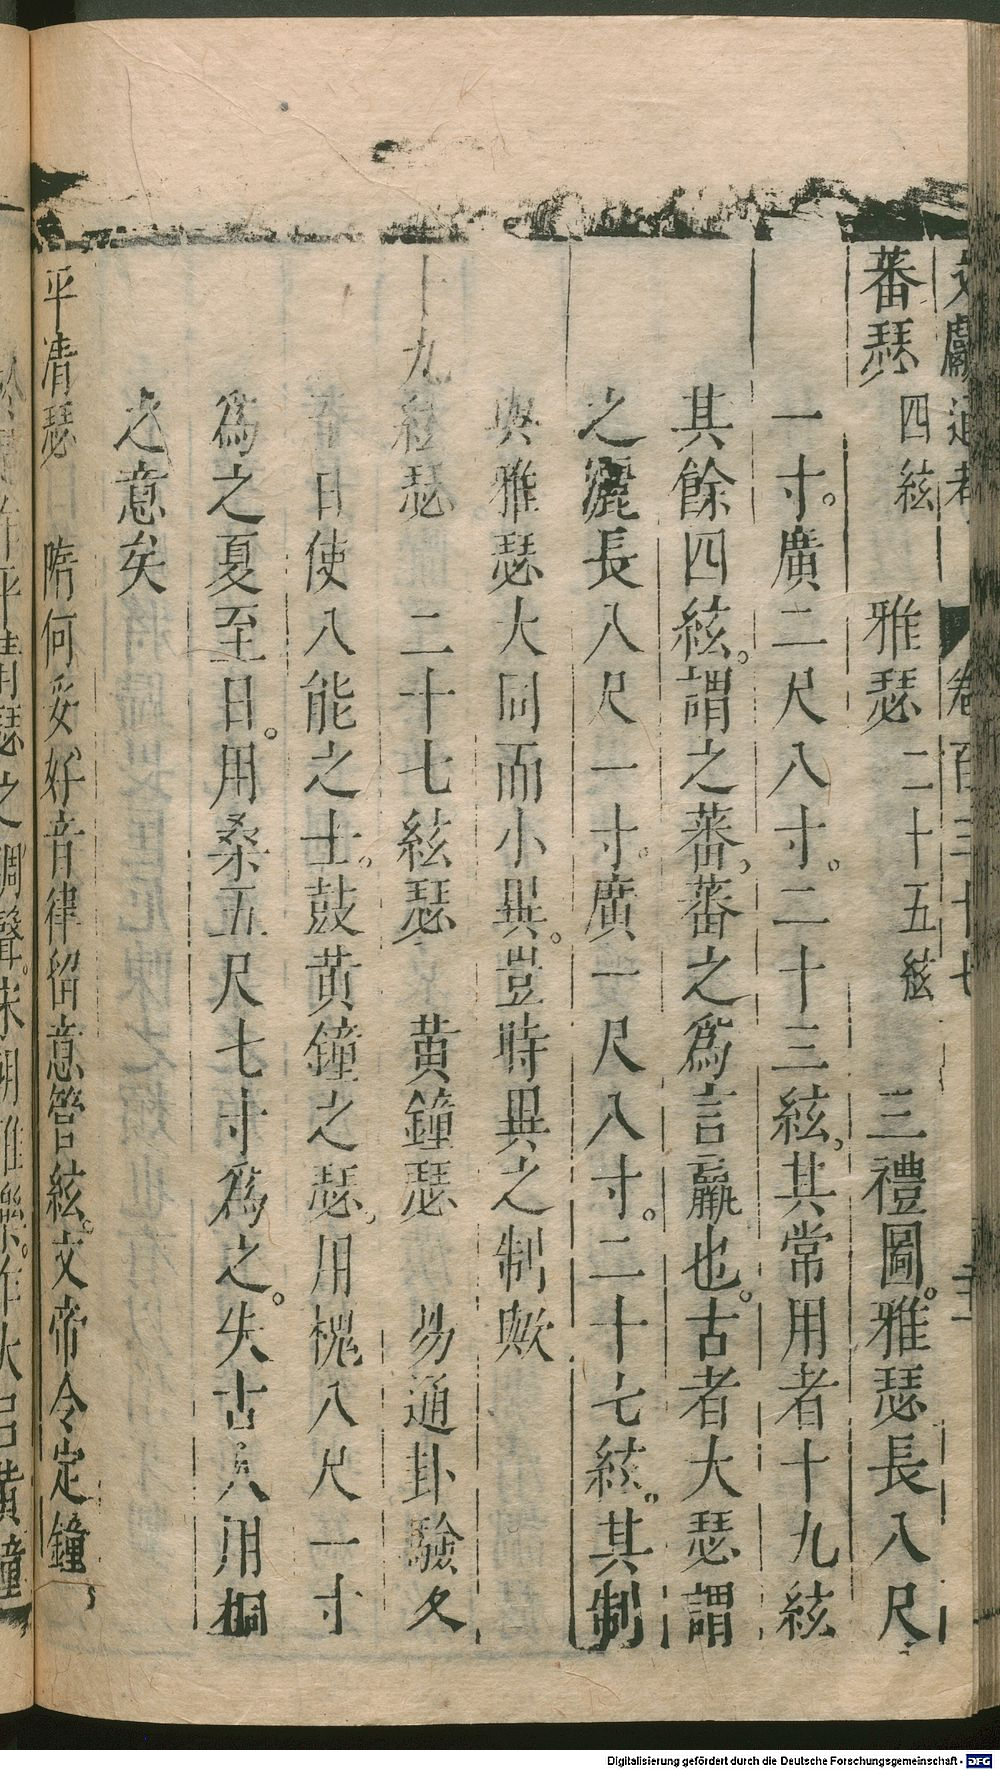 文獻通考 卷百三十七 三
蕃瑟 四絃 雅瑟 二十五絃 三禮圖。雅瑟長八尺
一寸。廣二尺八寸。二十三絃,其常用者十九絃
其餘四絃。謂之蕃,蕃之爲言羸也。古者大瑟謂
之灑長八尺一寸。廣一尺八寸。二十七絃。其制
與雅瑟大同而小異。豈時異之制歟
十九絃瑟 二十七絃瑟 黄鐘瑟 易通卦驗冬
日使八能之士。鼓黄鐘之瑟,用槐八尺一寸
爲之夏至日。用桑五尺七寸爲之。失古人用桐
之意矣
平凊瑟 隋何妥好音律留意管絃。文帝令定鐘,
作平清瑟之調聲。宋朝雅樂。作大呂黄鐘
Digitalisierung gefördert durch die Deutsche Forschungsgemeinschaft - DFG